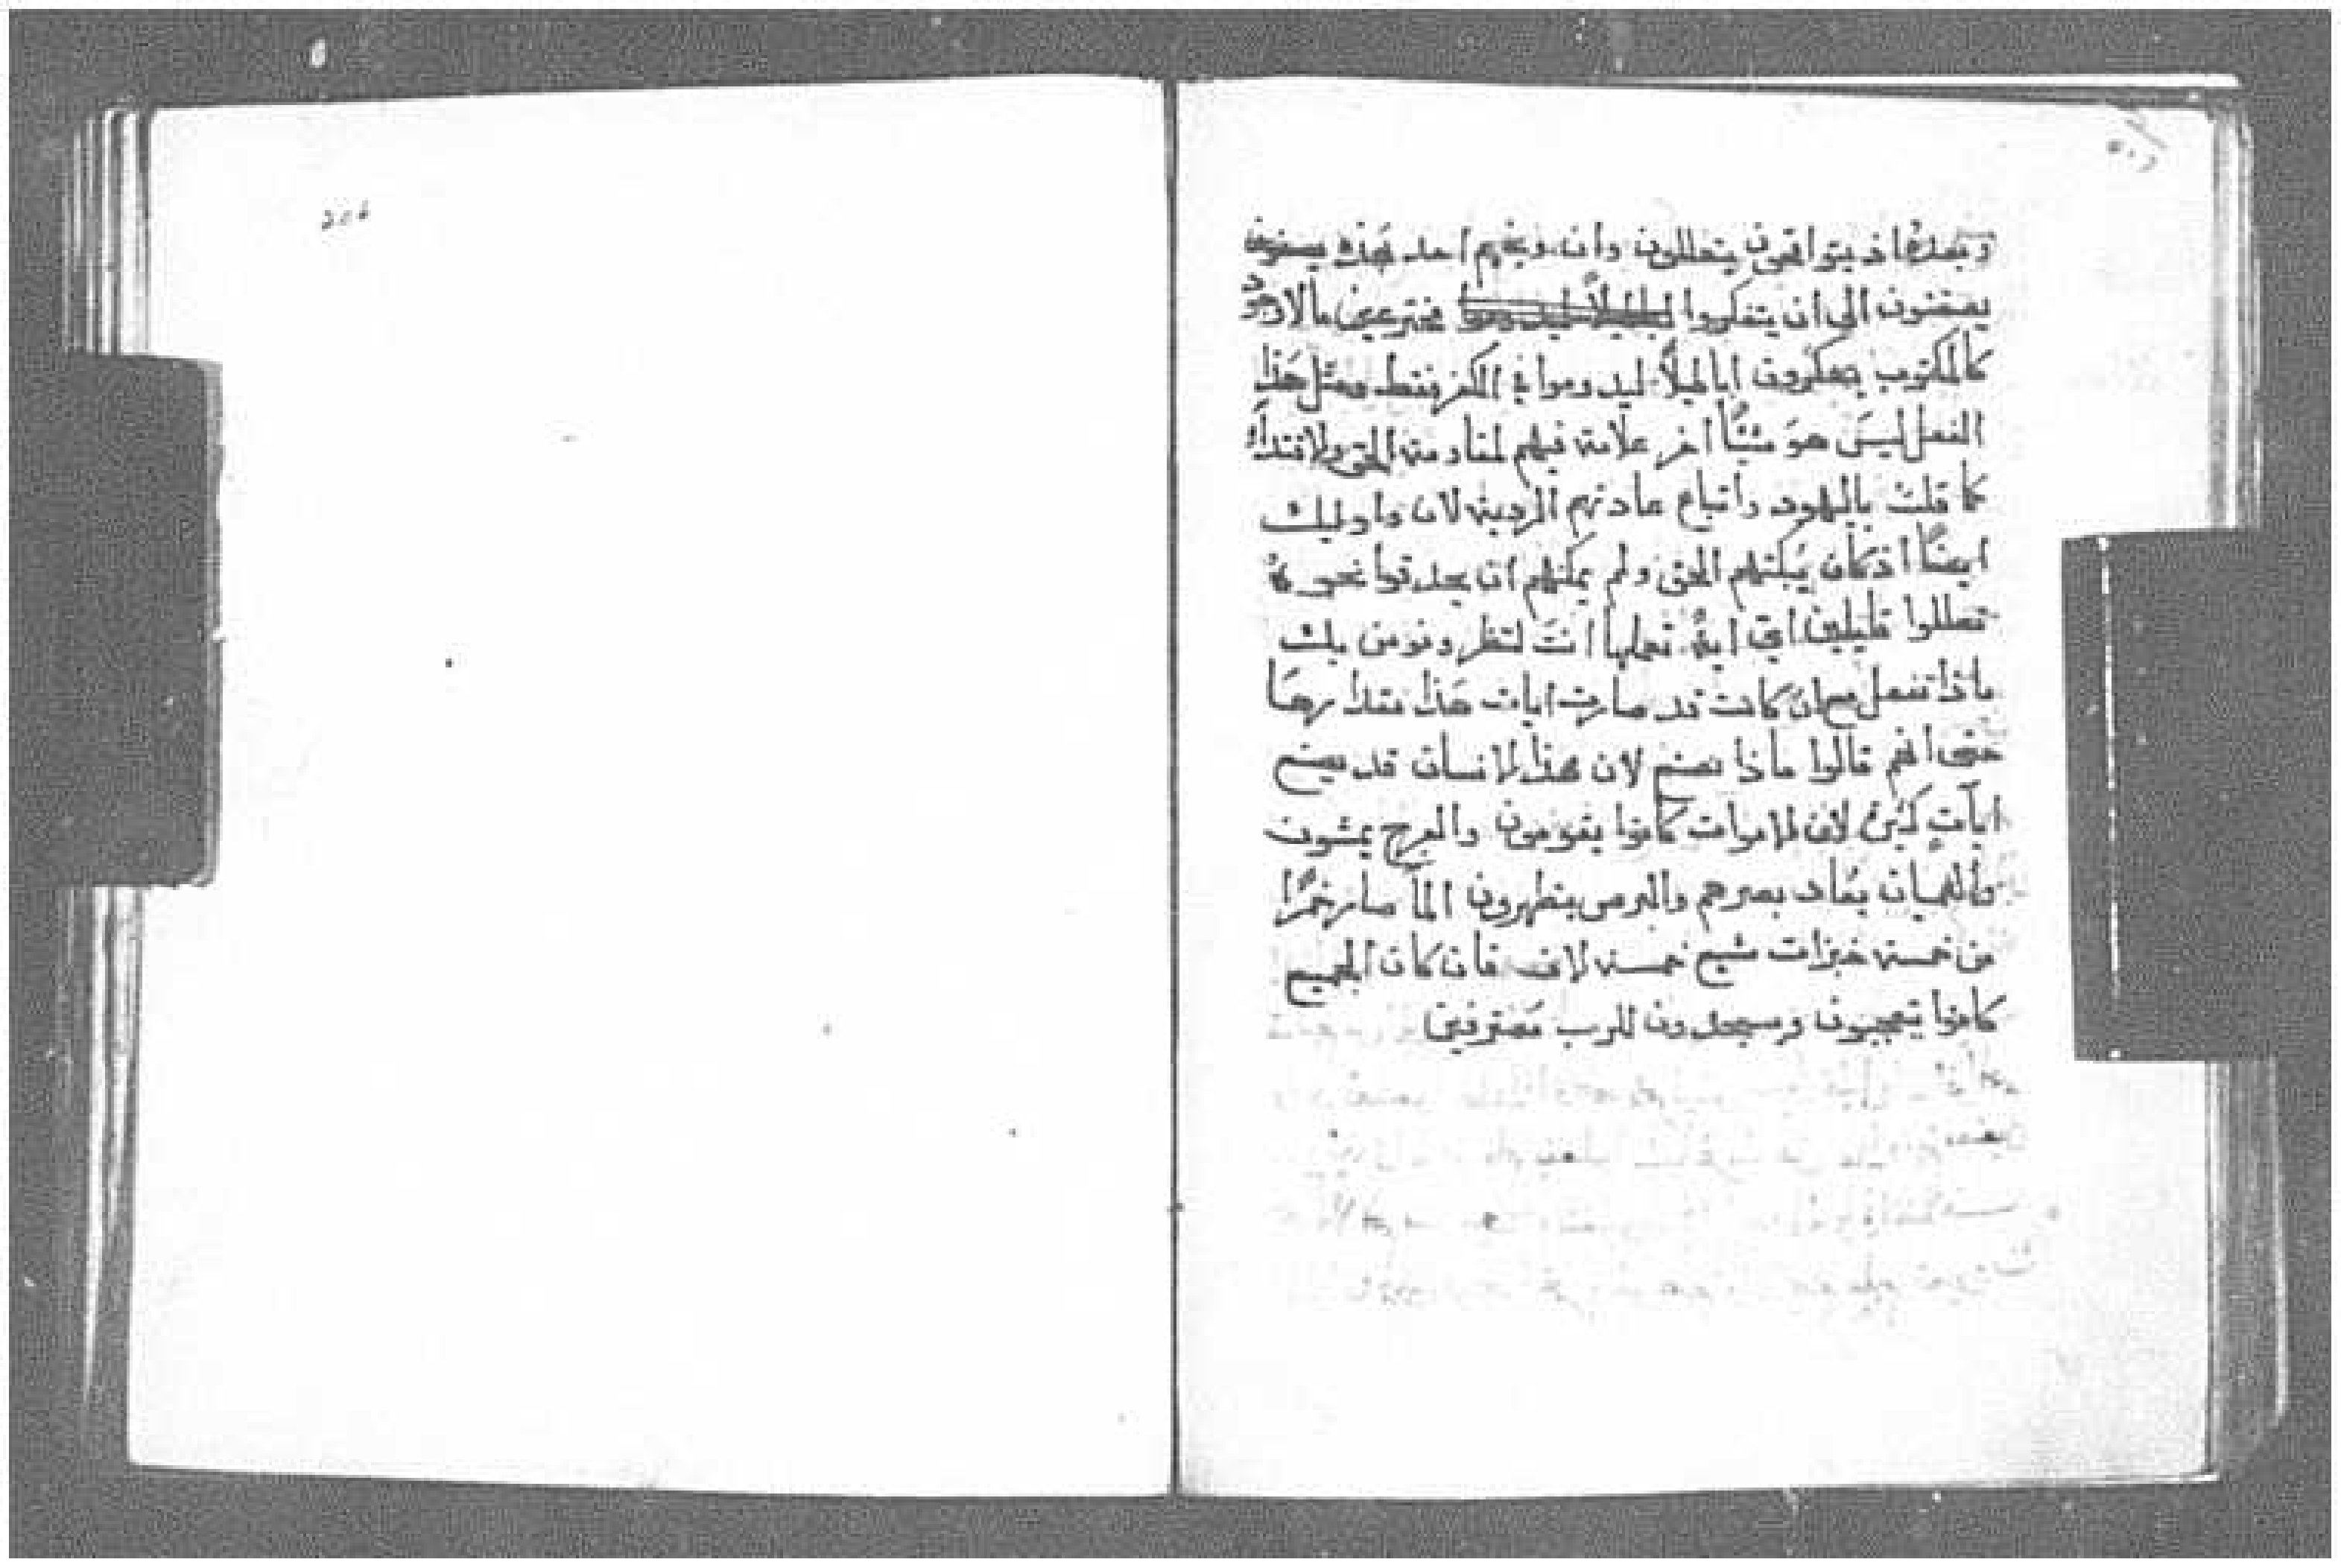 وبعدها اذ يتواقحون يتعللون وان وبخهم احد بهذه
يصغون الى ان يتفكروا مخترعين بالازود
كالمكتوب يفكرون اباطيلاً ليدوموا في الكفر فقط ومثل هذا
الفعل ليسَ هوَ شيًّا اخر علامة فيهم لمقاومة الحق ولاقتدآء
كما قلت باليهود واتباع عادتهم الردية لان واوليك
ايضًا اذ كان يُبكتهم الحق ولم يمكنهم ان يحدقوا نحوهُ
تعللوا قايلين اي ايةً تعملها انتَ لننظر ونومن بك
ماذا تفعل مع ان كانت قد صارت ايات هذا مقدارهَا
حتى انهم قالوا ماذا نصنع لان هذا الانسان قد يصنع
اياتٍ كثيرةً لان الاموات كانوا يقومون والعرج يمشون
والعميان يُعاد بصرهم والبرص يتطهرون المآ صار خمرًا
من خمسة خبزات شبع خمسة الاف فان كان الجميع
كانوا يتعجبون ويسجدون للرب مُعترفين